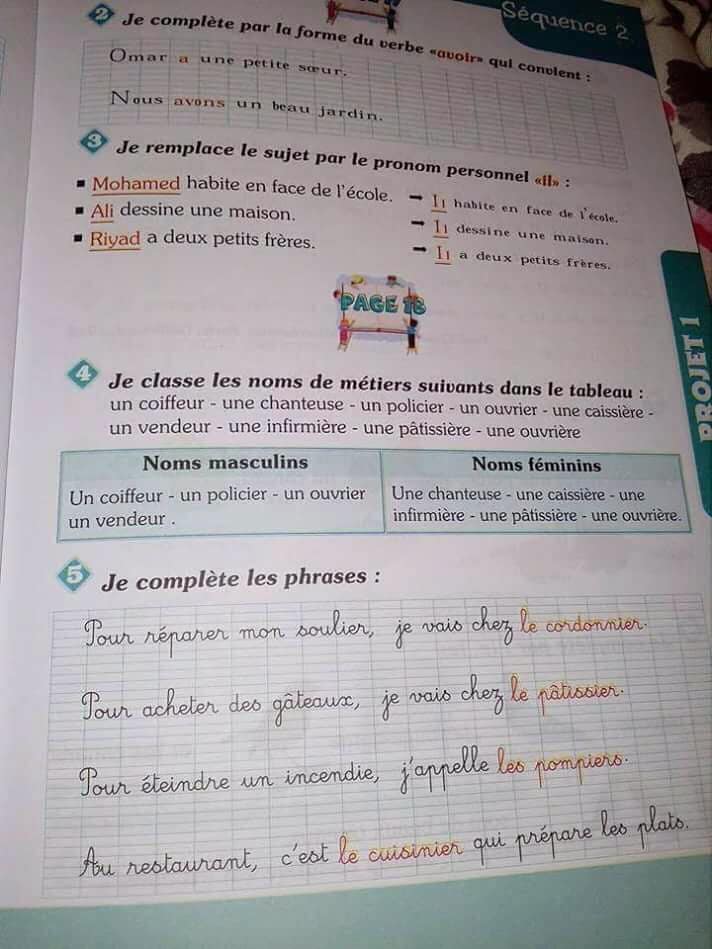 Séquence 2
2 Je complète par la forme du verbe «avoir» qui convient :
Omar a une petite sœur.
Nous avons un beau jardin.
3 Je remplace le sujet par le pronom personnel «il» :
▪ Mohamed habite en face de l'école. ➞ Il habite en face de l'école.
▪ Ali dessine une maison. ➞ Il dessine une maison.
▪ Riyad a deux petits frères. ➞ Il a deux petits frères.
PAGE 18
PROJET 1
4 Je classe les noms de métiers suivants dans le tableau :
un coiffeur - une chanteuse - un policier - un ouvrier - une caissière -
un vendeur - une infirmière - une pâtissière - une ouvrière
Noms masculins
Un coiffeur - un policier - un ouvrier
un vendeur .
Noms féminins
Une chanteuse - une caissière - une
infirmière - une pâtissière - une ouvrière.
5 Je complète les phrases :
Pour réparer mon soulier, je vais chez le cordonnier.
Pour acheter des gâteaux, je vais chez le pâtissier.
Pour éteindre un incendie, j'appelle les pompiers.
Au restaurant, c'est le cuisinier qui prépare les plats.